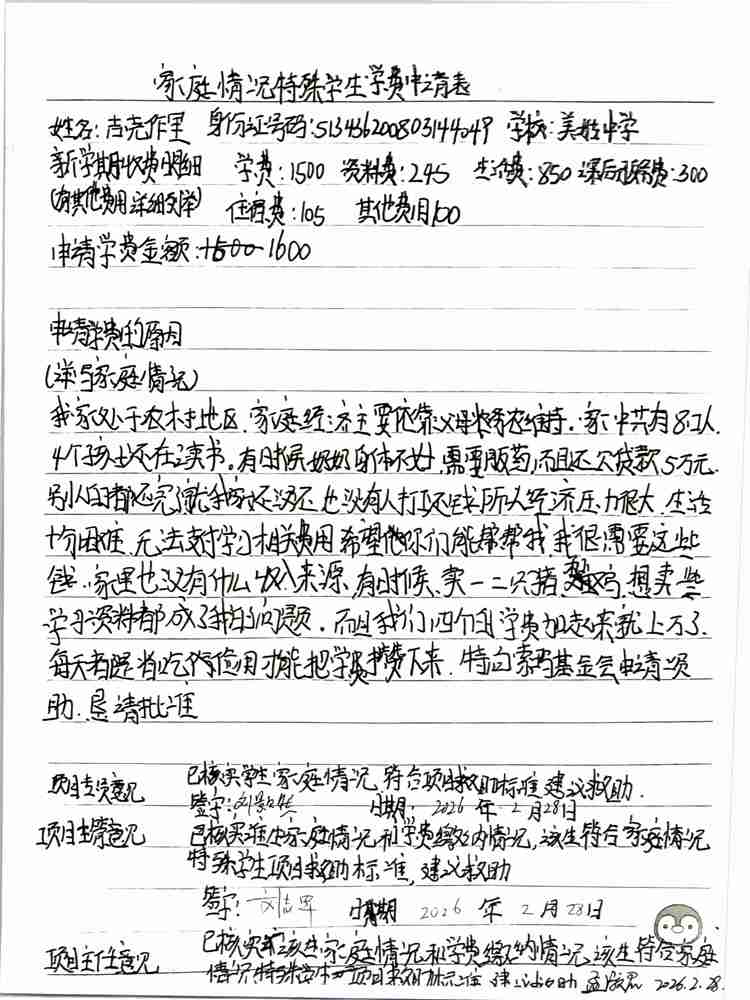 家庭情况特殊学生学费申请表
姓名:吉克作里 身份证号码:513436200803144049 学校:美姑中学
新学期收费明细 学费:1500 资料费:245 生活费:850 课后服务费:300
(有其他费用详细列举) 住宿费:105 其他费用100
申请学费金额:1500 1600
申请学费的原因
(详写家庭情况)
我家处于农村地区,家庭经济主要依靠父母务农维持。家中共有8口人,
4个孩子还在读书。有时候奶奶身体不好,需要服药,而且还欠贷款5万元.
别人的都还完了就我家还没还,也没有人打工还钱所以经济压力很大,生活
十分困难,无法支付学习相关费用希望你们能帮帮我我很需要这些
钱.家里也没有什么收入来源,有时候卖一二只猪 鸡,想买些
学习资料都成了我的问题.而且我们四个的学费加起来就上万了.
每天都是省吃俭用才能把学费攒下来.特向索玛基金会申请资
助.恳请批准
项目专员意见 已核实学生家庭情况,符合项目救助标准,建议救助.
签字: 日期:2026年2月28日
项目主管意见 已核实准生家庭情况和学费缴纳情况,该生符合家庭情况
特殊学生项目救助标准,建议救助
签字:刘志军 日期 2026年2月28日
项目主任意见 已核实 该生家庭情况和学费缴纳情况,该生符合家庭
情况特殊学生 项目救助标准 建议救助 2026.2.28.